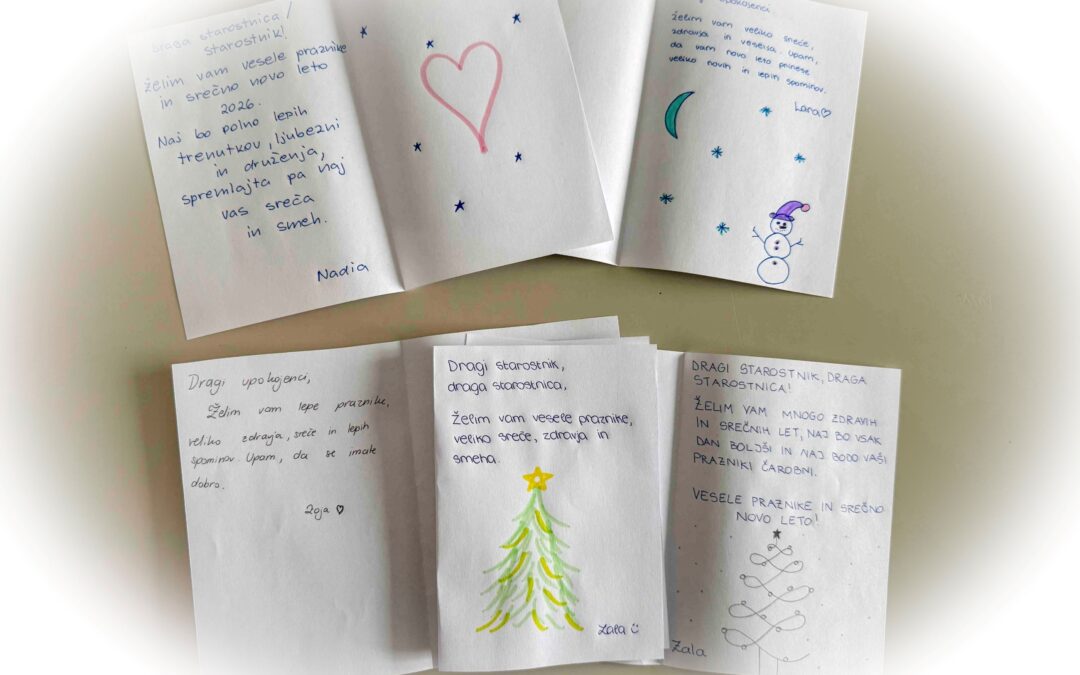 Draga starostnica /
starostnik!
želim vam vesele praznike
in srečno novo leto
2026.
Naj bo polno lepih
trenutkov, ljubezni
in druženja,
spremlajta pa naj
vas sreča
in smeh.
Nadia
upokojenci.
želim vam veliko sreče,
zdravja in veselja. Upam,
da vam novo leto prinese
veliko novih in lepih spominov.
Lara
Dragi upokojenci,
Želim vam lepe praznike,
veliko zdravja, sreče in lepih
spominov. Upam, da se imate
dobro.
Zoja
Dragi starostnik,
draga starostnica,
želim vam vesele praznike,
veliko sreče, zdravja in
smeha.
Zala
DRAGI STAROSTNIK, DRAGA
STAROSTNICA!
ŽELIM VAM MNOGO ZDRAVIH
IN SREČNIH LET, NAJ BO VSAK
DAN BOLJŠI IN NAJ BODO VAŠI
PRAZNIKI ČAROBNI.
VESELE PRAZNIKE IN SREČNO
NOVO LETO!
Zala